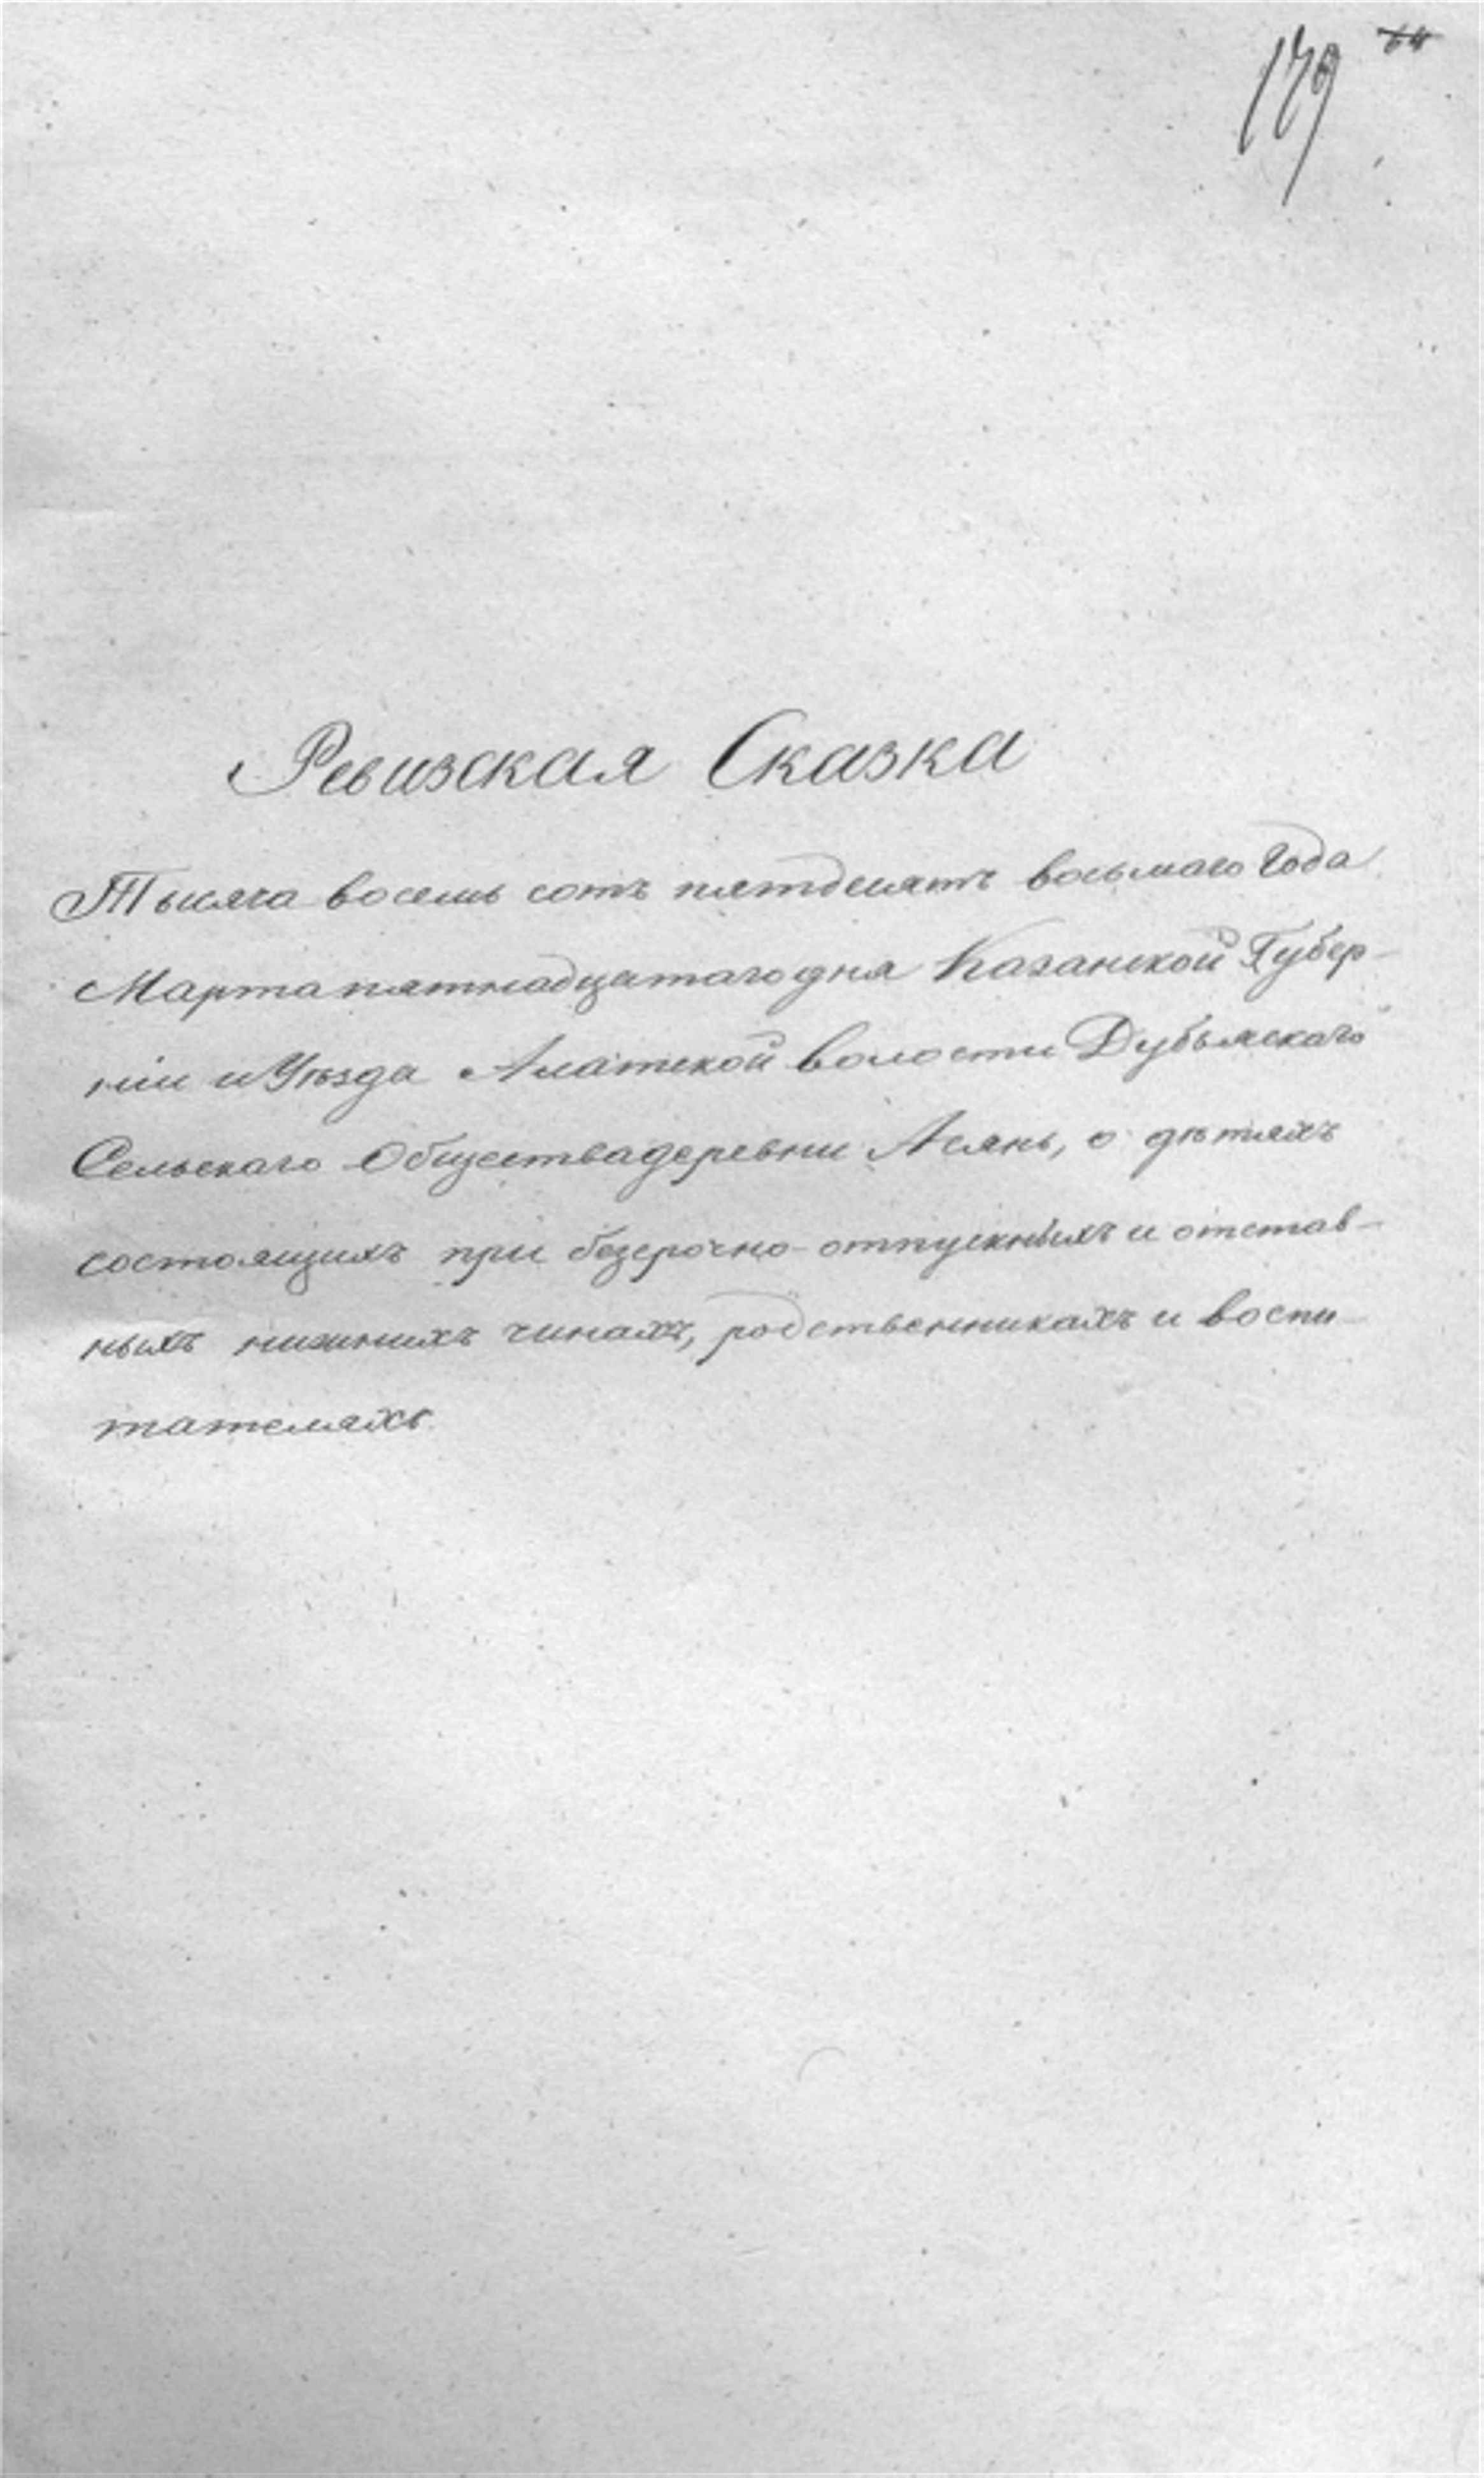 179 64
Ревизская Сказка
Тысяча восемь сотъ пятдесятъ восьмаго Года
Марта пятнадцатаго дня Казанской Губер-
ніи и Уѣзда Алатской волости Дубъяскаго
Сельскаго Общества деревни Асянь, о дѣтяхъ
состоящихъ при безсрочно-отпускныхъ и отстав-
ныхъ нижнихъ чинахъ, родственникахъ и воспи-
тателяхъ.